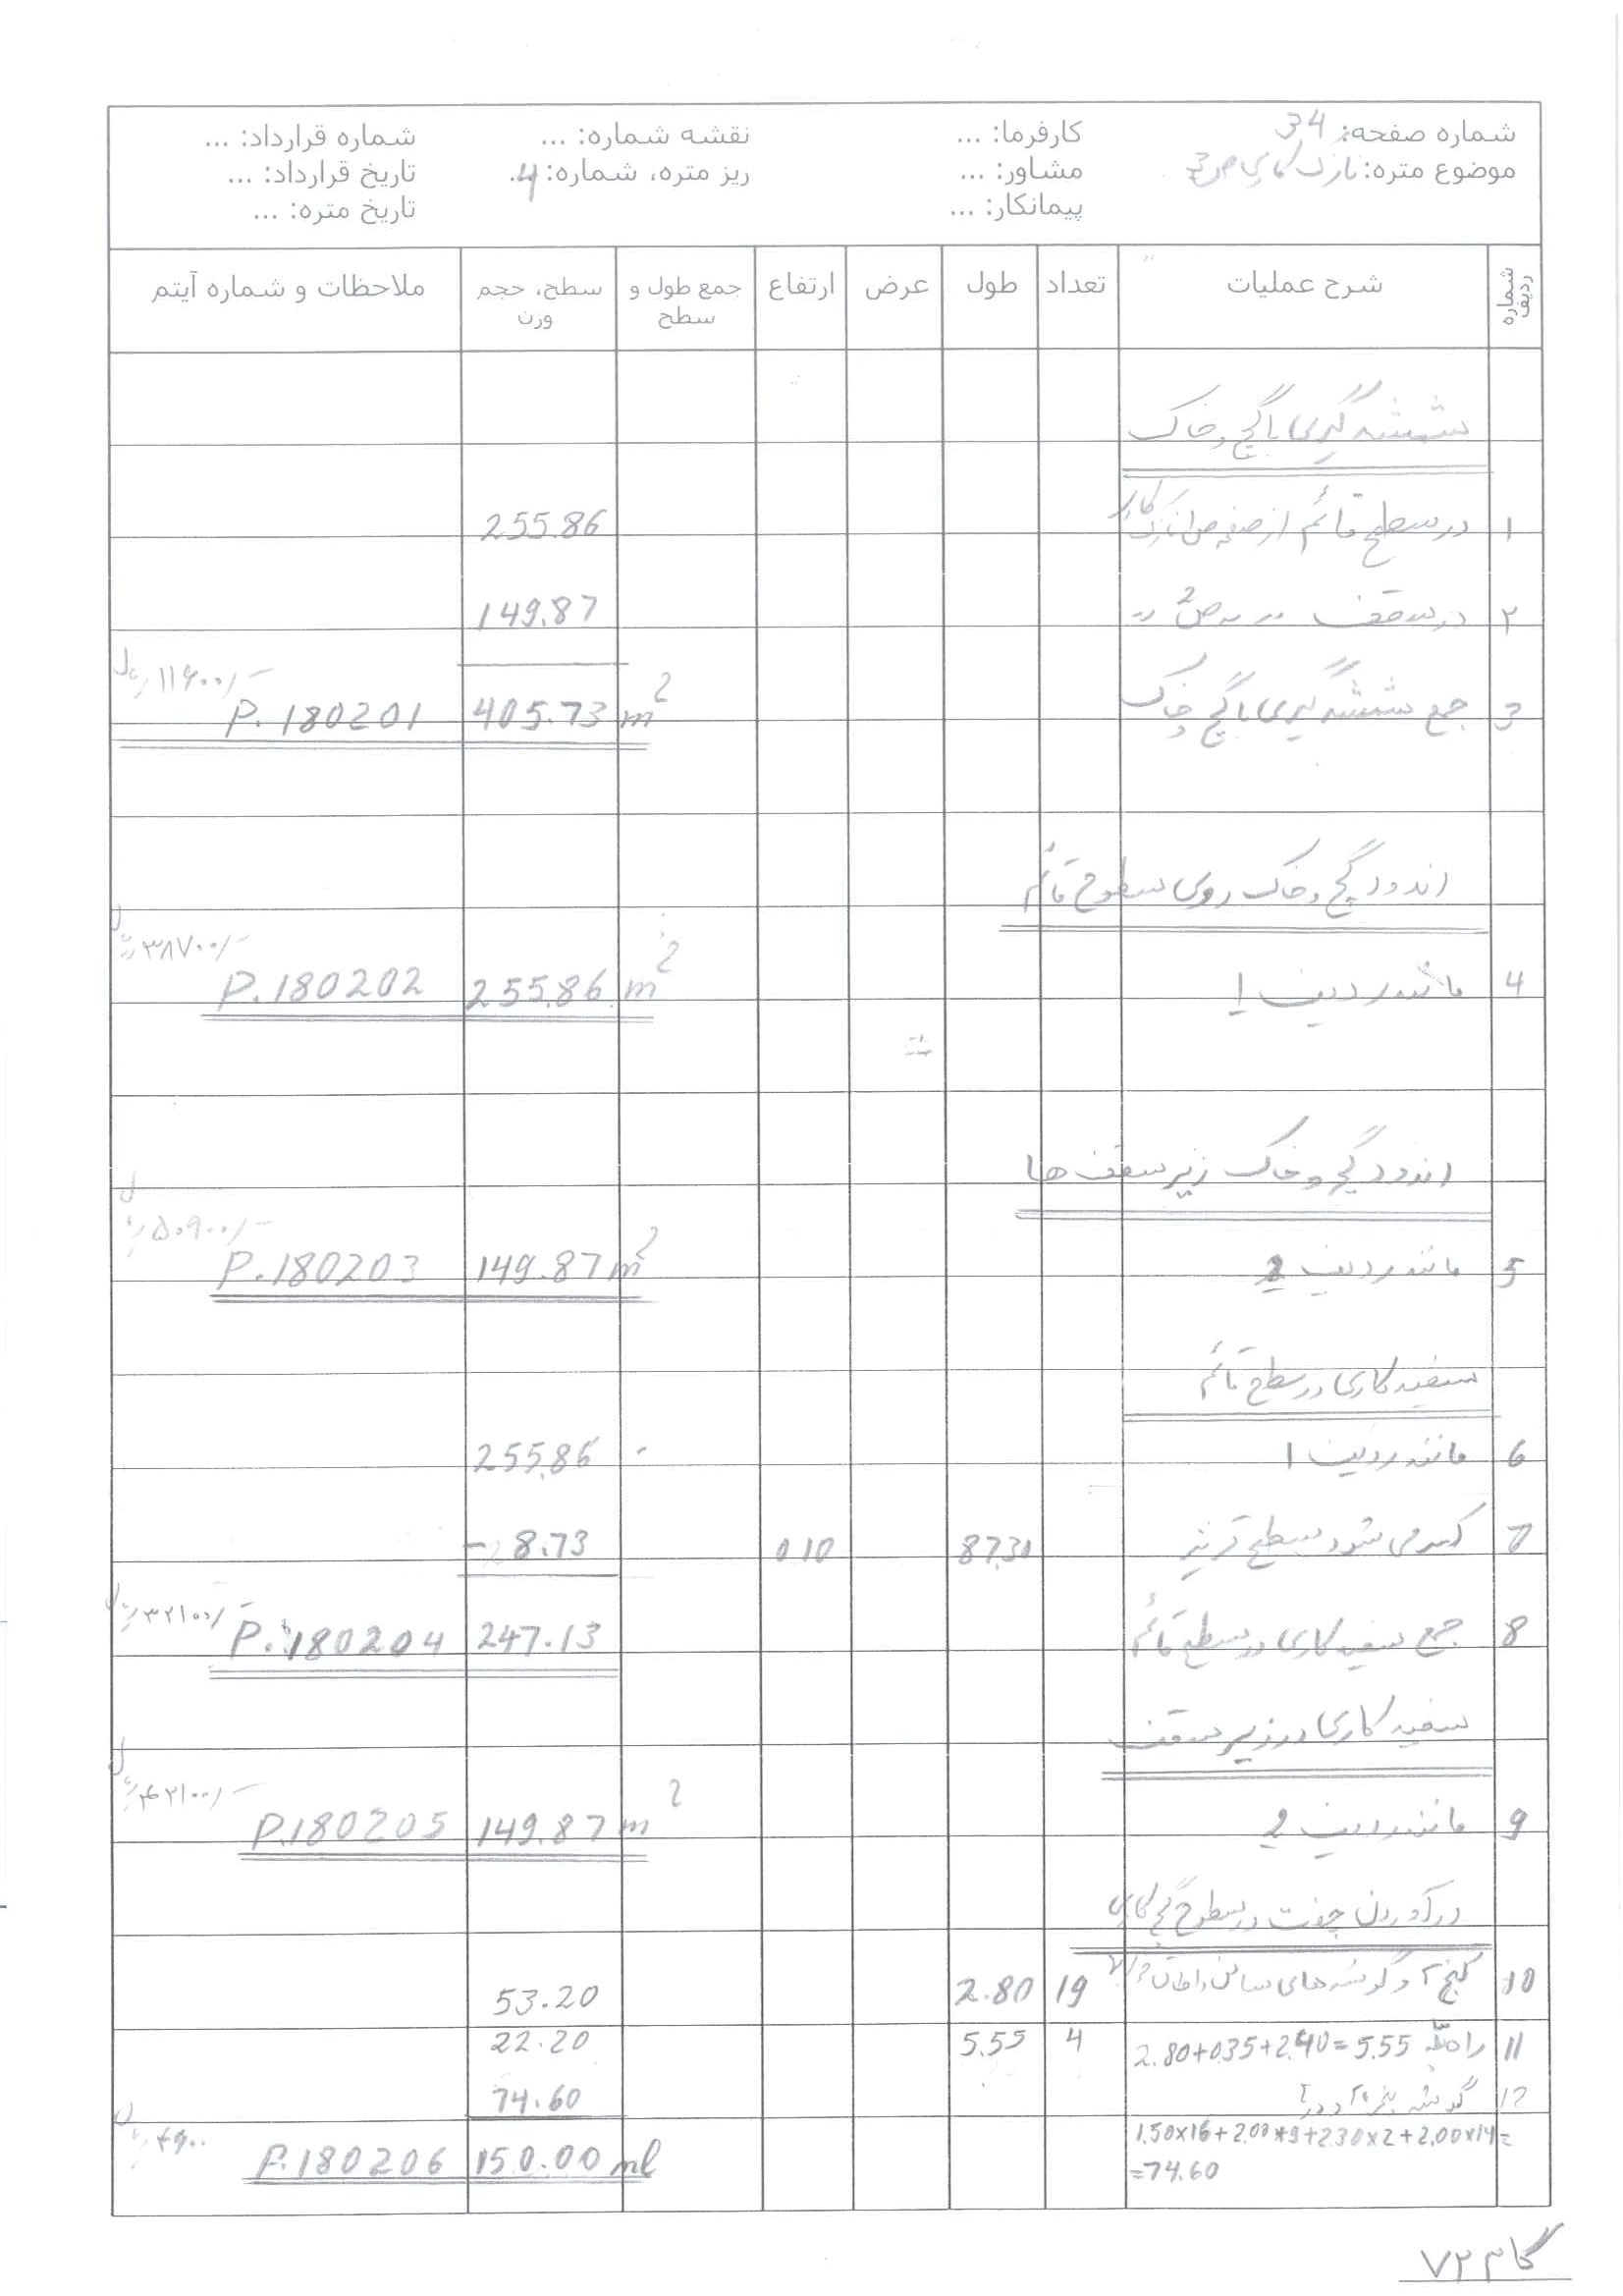 شماره صفحه: 34 کارفرما: ... نقشه شماره: ... شماره قرارداد: ...
موضوع متره: نازک کاری ص3 مشاور: ... ریز متره، شماره: 4. تاریخ قرارداد: ...
پیمانکار: ... تاریخ متره: ...
شماره ردیف شرح عملیات تعداد طول عرض ارتفاع جمع طول و سطح سطح، حجم وزن ملاحظات و شماره آیتم
شمشه گیری با گچ و خاک
۱ در سطح قائم از صفحه نازک کاری 255.86
۲ در سقف 〃 〃 ص2 〃 149.87
۱۱۶۰۰/- ریال
3 جمع شمشه گیری با گچ و خاک 405.73 m2 P.180201
اندود گچ و خاک روی سطوح قائم
۳۸۷۰۰/- ریال
4 مانند ردیف 1 255.86 m2 P.180202
اندود گچ و خاک زیر سقف ها
۵۰۹۰۰/- ریال
5 مانند ردیف 2 149.87 m2 P.180203
سفید کاری در سطح قائم
6 مانند ردیف 1 255.86
7 کسر می شود سطح قرنیز 87.30 0.10 -8.73
۳۲۱۰۰/- ریال
8 جمع سفید کاری در سطح قائم 247.13 P.180204
سفید کاری در زیر سقف
۴۲۱۰۰/- ریال
9 مانند ردیف 2 149.87 m2 P.180205
درآوردن چفت در سطوح گچ کاری
10 کنج و گوشه های سالن 19 2.80 53.20
11 راه پله 2.80+0.35+2.40=5.55 4 5.55 22.20
12 گوشه پنجره 74.60
1.50x16+2.00x9+2.30x2+2.00x14=
=74.60
150.00 ml P.180206
گام ۷۲۳